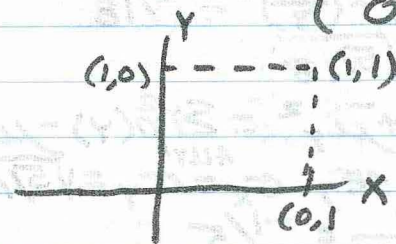 ( 0
Y
(1,0) (1,1)
X
(0,1